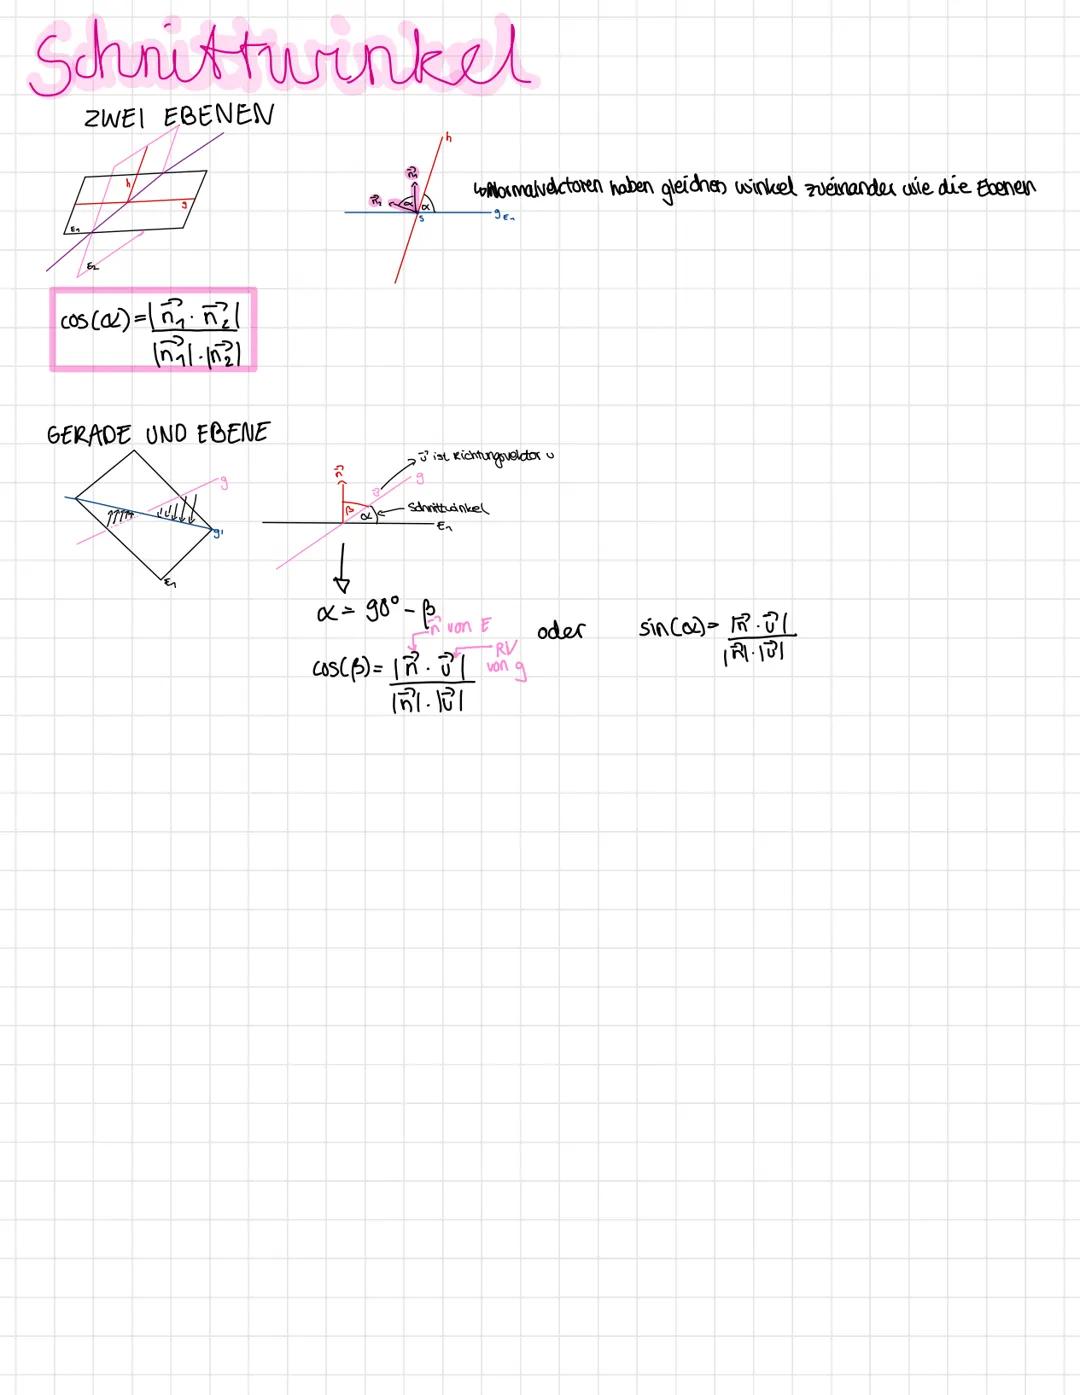 Schnittwinkel
ZWEI EBENEN
h
g
E₁
E₂
h
n⃗₁
n⃗₂
α
α
s
g E₁
↳ Normalvektoren haben gleichen winkel zueinander wie die Ebenen
cos(α) = |n⃗₁ · n⃗₂| / |n⃗₁| · |n⃗₂|
GERADE UND EBENE
g
g'
E₁
n⃗
u⃗ ist Richtungsvektor u
g
β
α
Schnittwinkel
E₁
α = 90° - β
n⃗ von E
cos(β) = |n⃗ · u⃗| / |n⃗| · |u⃗|
RV von g
oder
sin(α) = |n⃗ · u⃗| / |n⃗| · |u⃗|